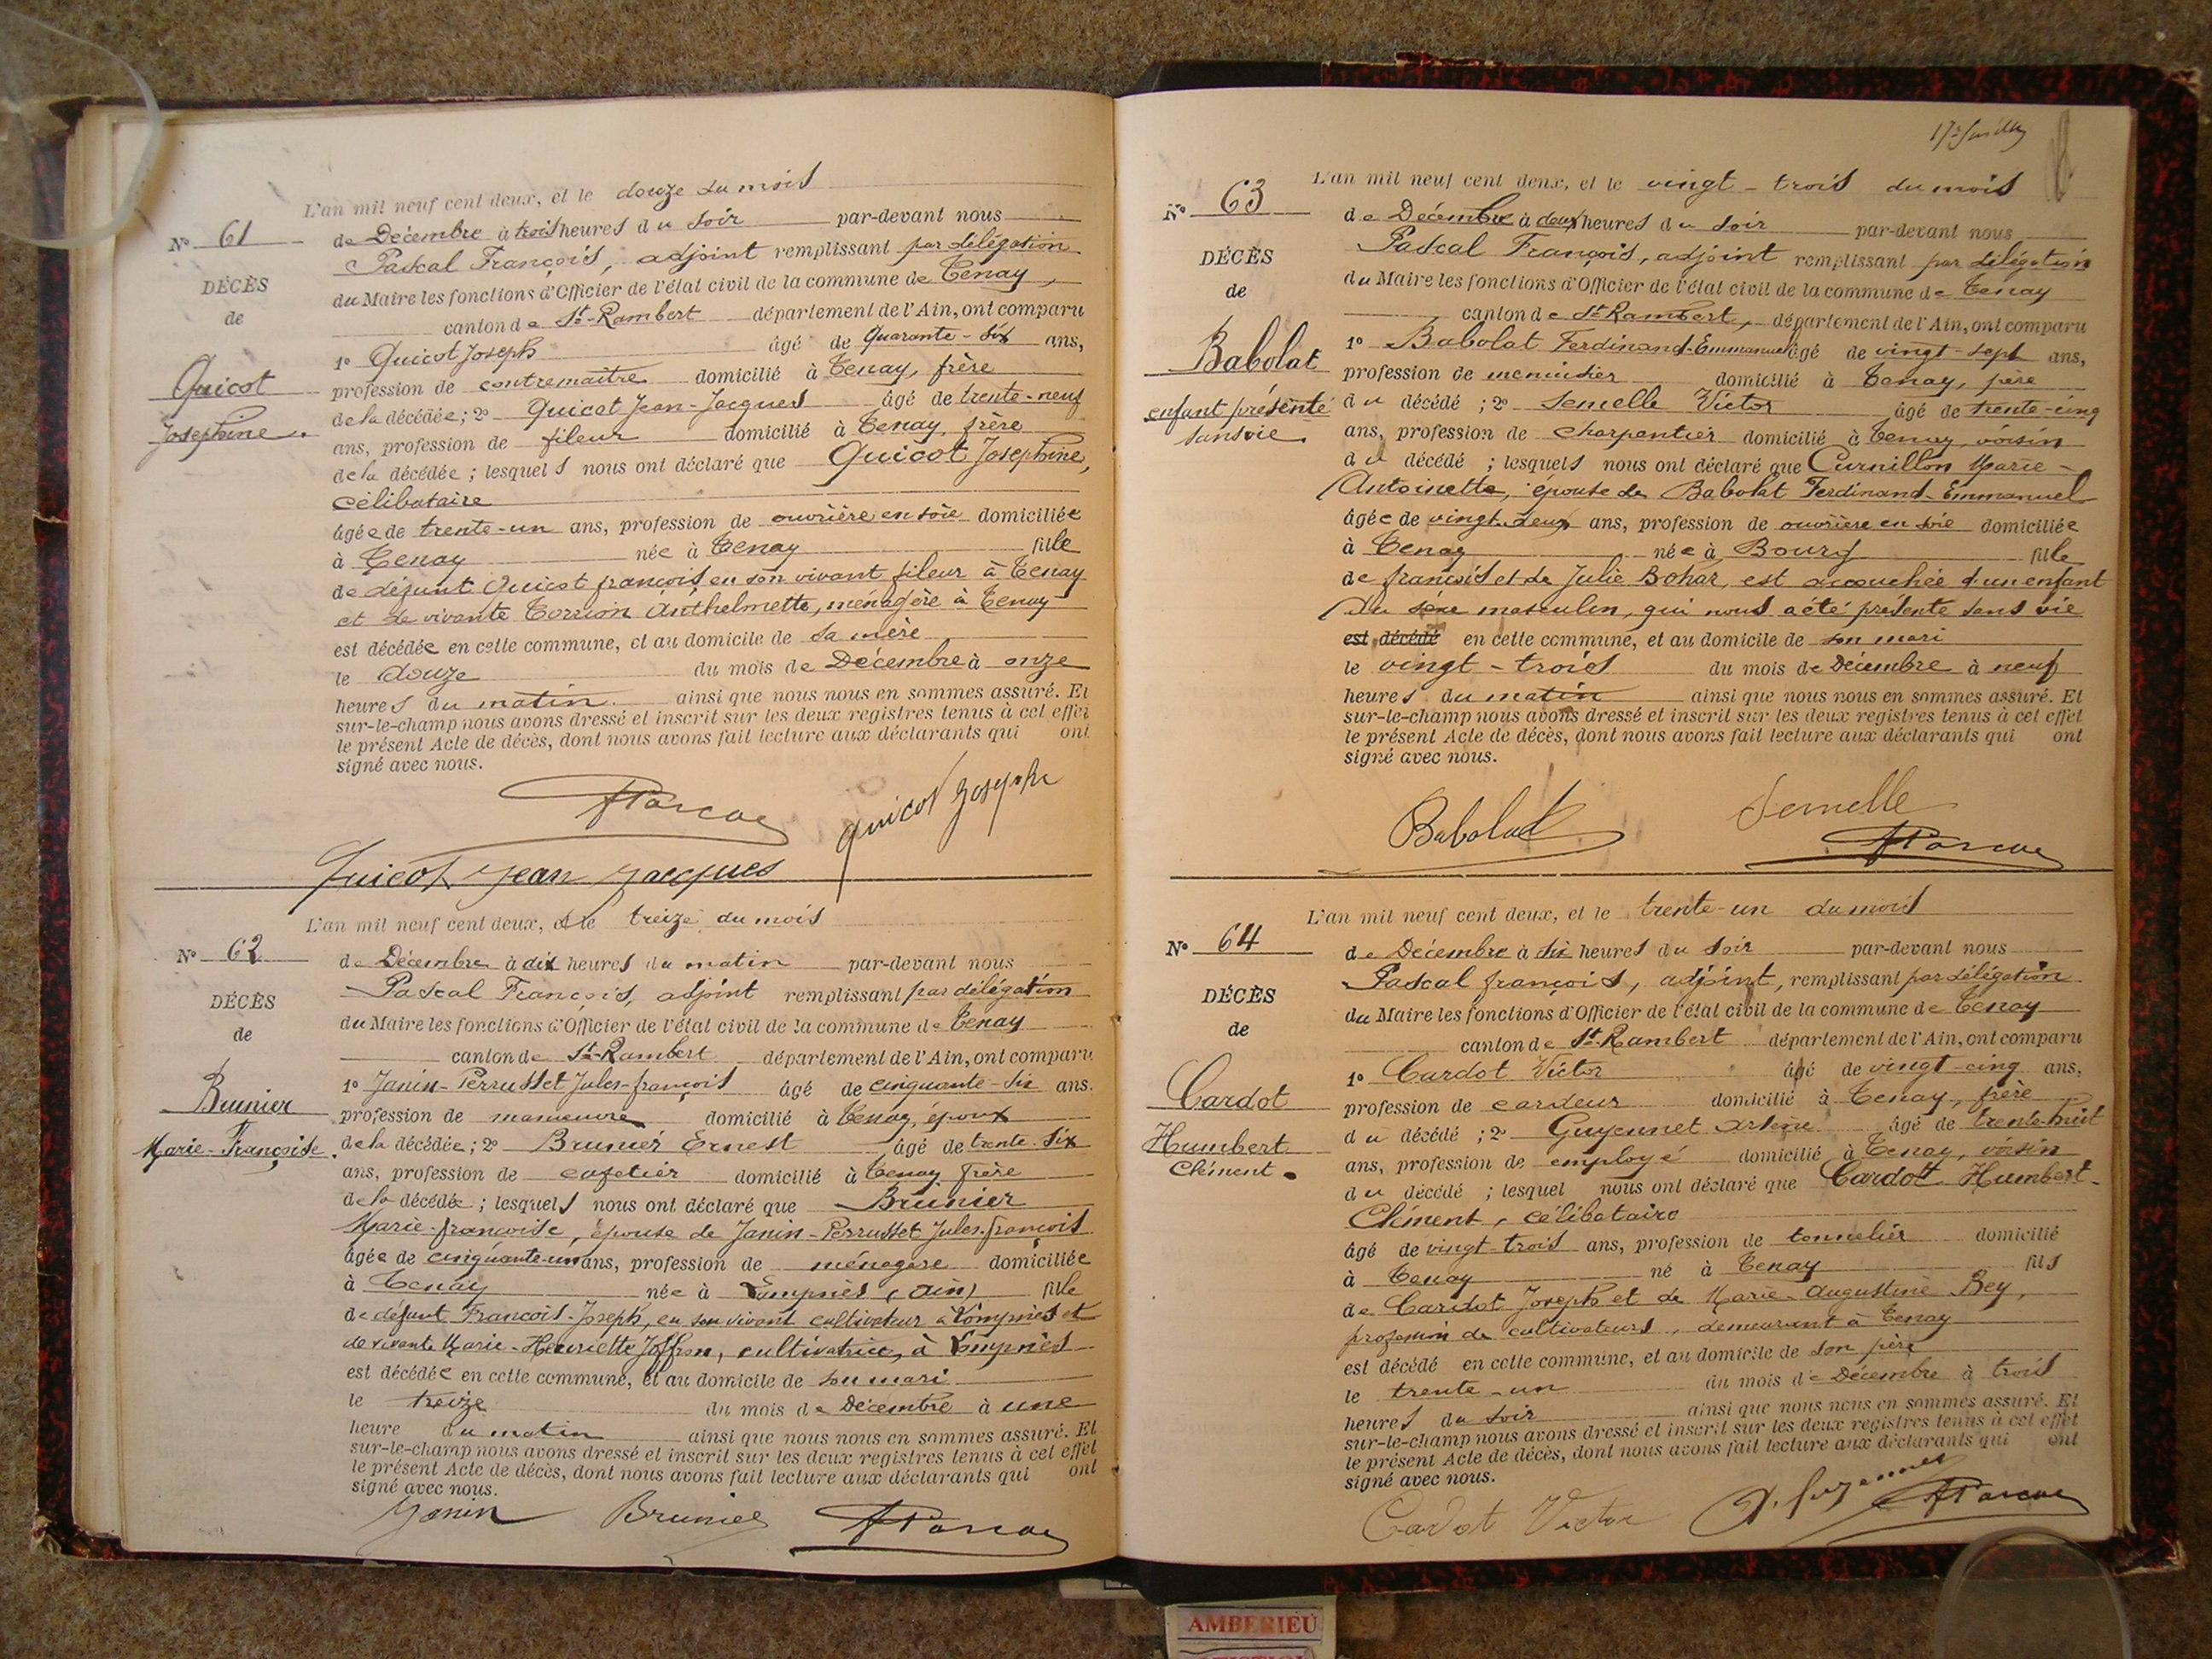 L'an mil neuf cent deux, et le douze du mois
Nº 61
de Décembre à trois heures du soir par-devant nous
Pascal François, adjoint remplissant par délégation
DÉCÈS
du Maire les fonctions d'Officier de l'état civil de la commune de Tenay,
de
canton de St-Rambert département de l'Ain, ont comparu
1º Quicot Joseph âgé de quarante-six ans,
Quicot
profession de contremaître domicilié à Tenay, frère
Josephine.
de la décédée; 2º Quicot Jean-Jacques âgé de trente-neuf
ans, profession de fileur domicilié à Tenay, frère
de la décédée; lesquels nous ont déclaré que Quicot Josephine,
célibataire
âgée de trente-un ans, profession de ouvrière en soie domiciliée
à Tenay née à Tenay fille
de défunt Quicot françois en son vivant fileur à Tenay
et de vivante Anthelmette, ménagère à Tenay
est décédée en cette commune, et au domicile de sa mère
le douze du mois de Décembre à onze
heures du matin ainsi que nous nous en sommes assuré. Et
sur-le-champ nous avons dressé et inscrit sur les deux registres tenus à cet effet
le présent Acte de décès, dont nous avons fait lecture aux déclarants qui ont
signé avec nous.
Quicot Joseph
Quicot Jean Jacques
L'an mil neuf cent deux, et le treize du mois
Nº 62
de Décembre à dix heures du matin par-devant nous
Pascal François, adjoint remplissant par délégation
DÉCÈS
du Maire les fonctions d'Officier de l'état civil de la commune de Tenay
de
canton de St-Rambert département de l'Ain, ont comparu
1º Janin-Perrusset Jules-françois âgé de cinquante-six ans.
Brunier
profession de manœuvre domicilié à Tenay, époux
Marie-Françoise.
de la décédée; 2º Brunier Ernest âgé de trente-six
ans, profession de cafetier domicilié à Tenay, frère
de la décédée; lesquels nous ont déclaré que Brunier
Marie-françoise, épouse de Janin-Perrusset Jules-françois
âgée de cinquante-un ans, profession de ménagère domiciliée
à Tenay née à Lompnès (Ain) fille
de défunt François-Joseph, en son vivant cultivateur à Lompnès et
de vivante Marie-Henriette Joffron, cultivatrice, à Lompnès
est décédée en cette commune, et au domicile de son mari
le treize du mois de Décembre à une
heure du matin ainsi que nous nous en sommes assuré. Et
sur-le-champ nous avons dressé et inscrit sur les deux registres tenus à cet effet
le présent Acte de décès, dont nous avons fait lecture aux déclarants qui ont
signé avec nous.
Janin Brunier
L'an mil neuf cent deux, et le vingt-trois du mois
Nº 63
de Décembre à deux heures du soir par-devant nous
Pascal François, adjoint remplissant par délégation
DÉCÈS
du Maire les fonctions d'Officier de l'état civil de la commune de Tenay
de
canton de St-Rambert, département de l'Ain, ont comparu
1º Babolat Ferdinand-Emmanuel âgé de vingt-sept ans,
Babolat
profession de menuisier domicilié à Tenay, père
enfant présenté
sans vie
du décédé; 2º Semelle Victor âgé de trente-cinq
ans, profession de charpentier domicilié à Tenay, voisin
du décédé; lesquels nous ont déclaré que Curnillon Marie-
Antoinette, épouse de Babolat Ferdinand-Emmanuel
âgée de vingt-deux ans, profession de ouvrière en soie domiciliée
à Tenay née à Bourg fille
de françois et de Julie Bohar, est accouchée d'un enfant
du sexe masculin, qui nous a été présenté sans vie
est décédé en cette commune, et au domicile de son mari
le vingt-trois du mois de Décembre à neuf
heures du matin ainsi que nous nous en sommes assuré. Et
sur-le-champ nous avons dressé et inscrit sur les deux registres tenus à cet effet
le présent Acte de décès, dont nous avons fait lecture aux déclarants qui ont
signé avec nous.
Babolat Semelle
L'an mil neuf cent deux, et le trente-un du mois
Nº 64
de Décembre à six heures du soir par-devant nous
Pascal françois, adjoint, remplissant par délégation
DÉCÈS
du Maire les fonctions d'Officier de l'état civil de la commune de Tenay
de
canton de St-Rambert département de l'Ain, ont comparu
1º Cardot Victor âgé de vingt-cinq ans,
Cardot
profession de cardeur domicilié à Tenay, frère
Humbert
Clément.
du décédé; 2º Guyennet Arsène âgé de trente-huit
ans, profession de employé domicilié à Tenay, voisin
du décédé; lesquel nous ont déclaré que Cardot Humbert-
Clément, célibataire
âgé de vingt-trois ans, profession de tonnelier domicilié
à Tenay né à Tenay fils
de Cardot Joseph et de Marie-Augustine Bey,
profession de cultivateurs, demeurant à Tenay
est décédé en cette commune, et au domicile de son père
le trente-un du mois de Décembre à trois
heures du soir ainsi que nous nous en sommes assuré. Et
sur-le-champ nous avons dressé et inscrit sur les deux registres tenus à cet effet
le présent Acte de décès, dont nous avons fait lecture aux déclarants qui ont
signé avec nous.
Cardot Victor
AMBERIEU